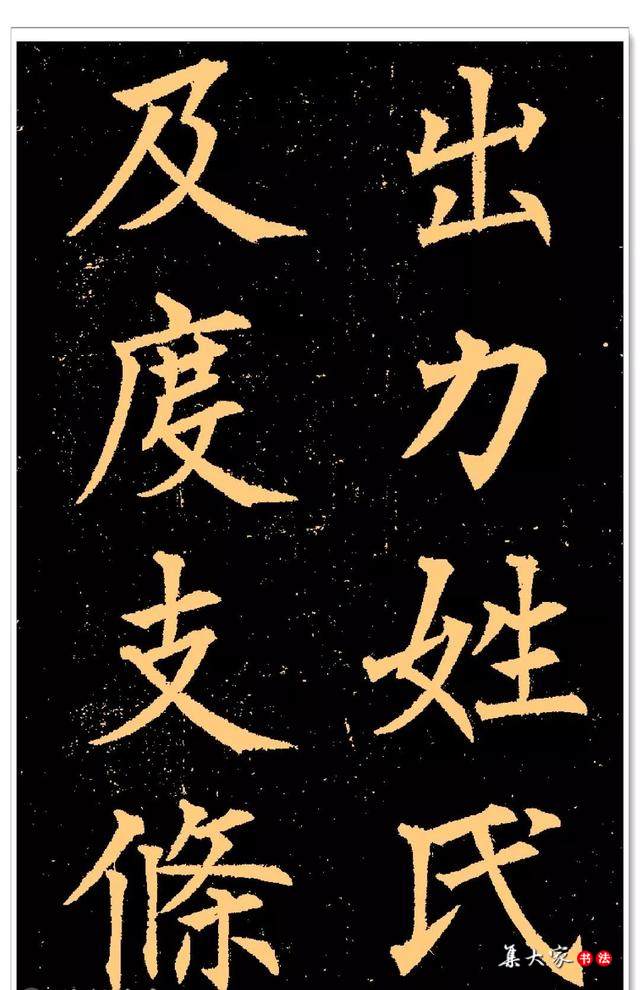 出力姓氏
及度支條
集大家书法